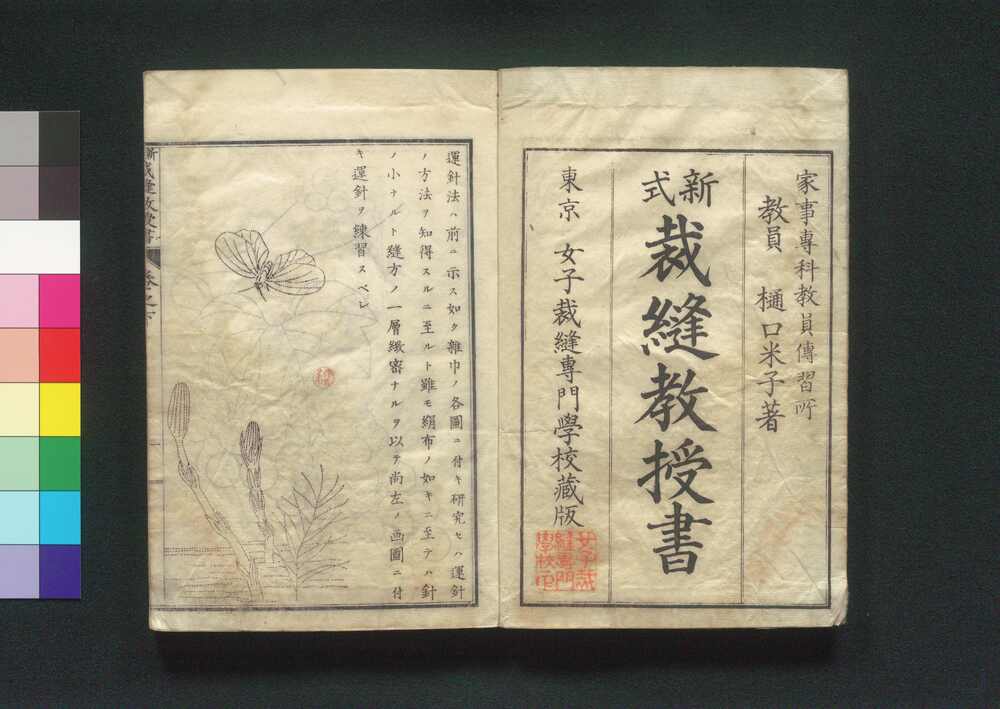 家事專科教員傳習所
教員 樋口米子著
新式 裁縫教授書
東京 女子裁縫專門學校藏版
女子裁
縫專門
學校印
運針法ハ前ニ示ス如ク雜巾ノ各圖ニ付キ研究セハ運針
ノ方法ヲ知得スルニ至ルト雖モ絹布ノ如キニ至テハ針
ノ小ナルト縫方ノ一層緻密ナルヲ以テ尚左ノ画圖ニ付
キ運針ヲ練習スベシ
新式裁縫教授書 卷之下